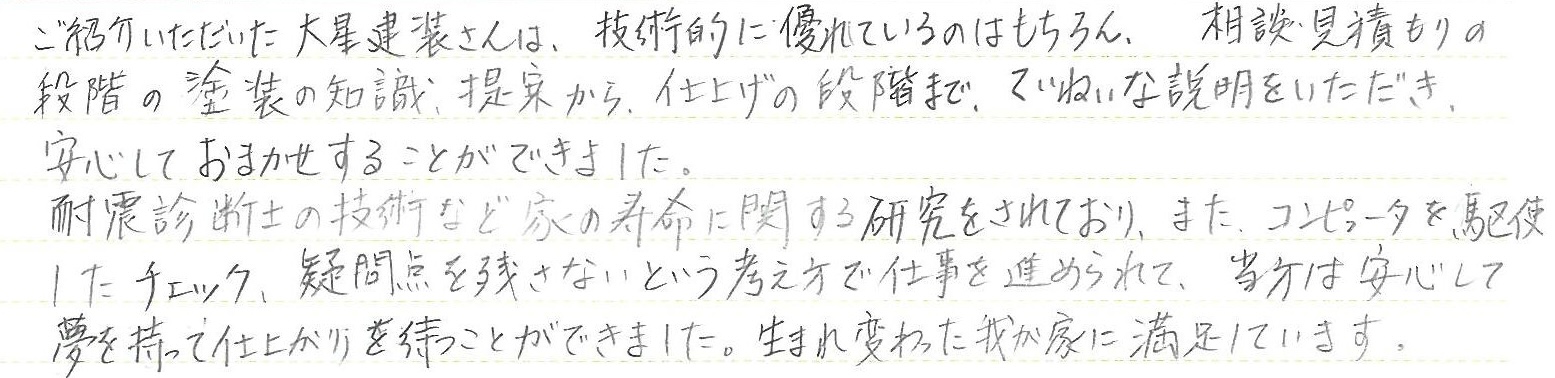 ご紹介いただいた大星建装さんは、技術的に優れているのはもちろん、相談・見積もりの
段階の塗装の知識、提案から、仕上げの段階まで、ていねいな説明をいただき、
安心しておまかせすることができました。
耐震診断士の技術など家の寿命に関する研究をされており、また、コンピュータを駆使
したチェック、疑問点を残さないという考え方で仕事を進められて、当方は安心して
夢を持って仕上がりを待つことができました。生まれ変わった我が家に満足しています。